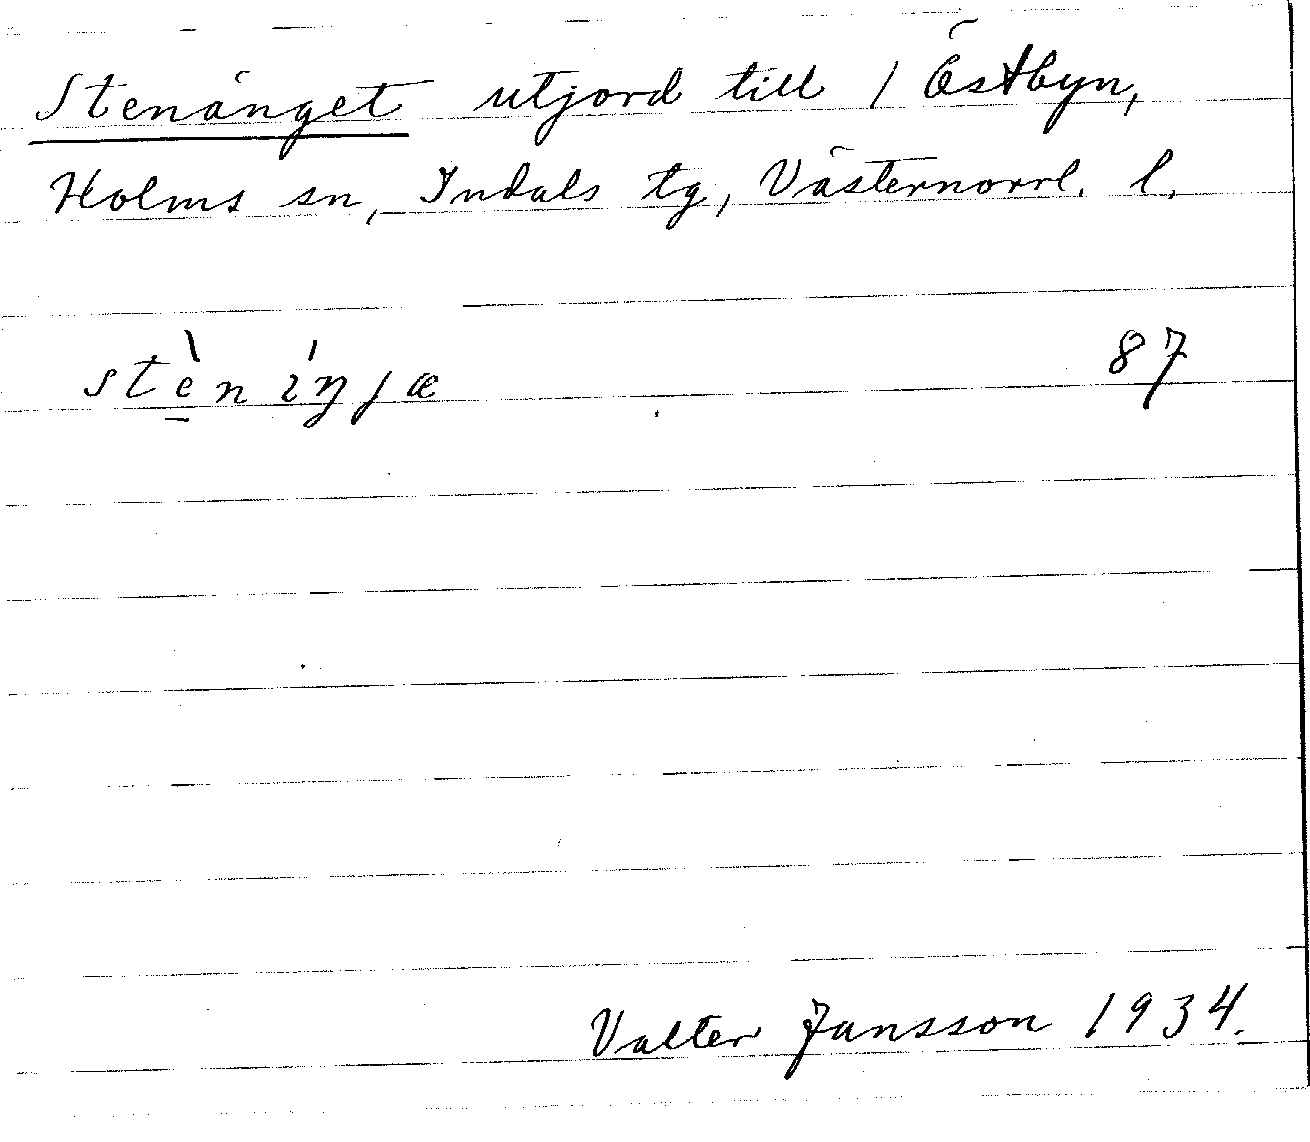 Stenänget utjord till 1 Östbyn,
Holms sn, Indals tg, Västernorrl. l.
stè̠n íŋjæ 87
Valter Jansson 1934.